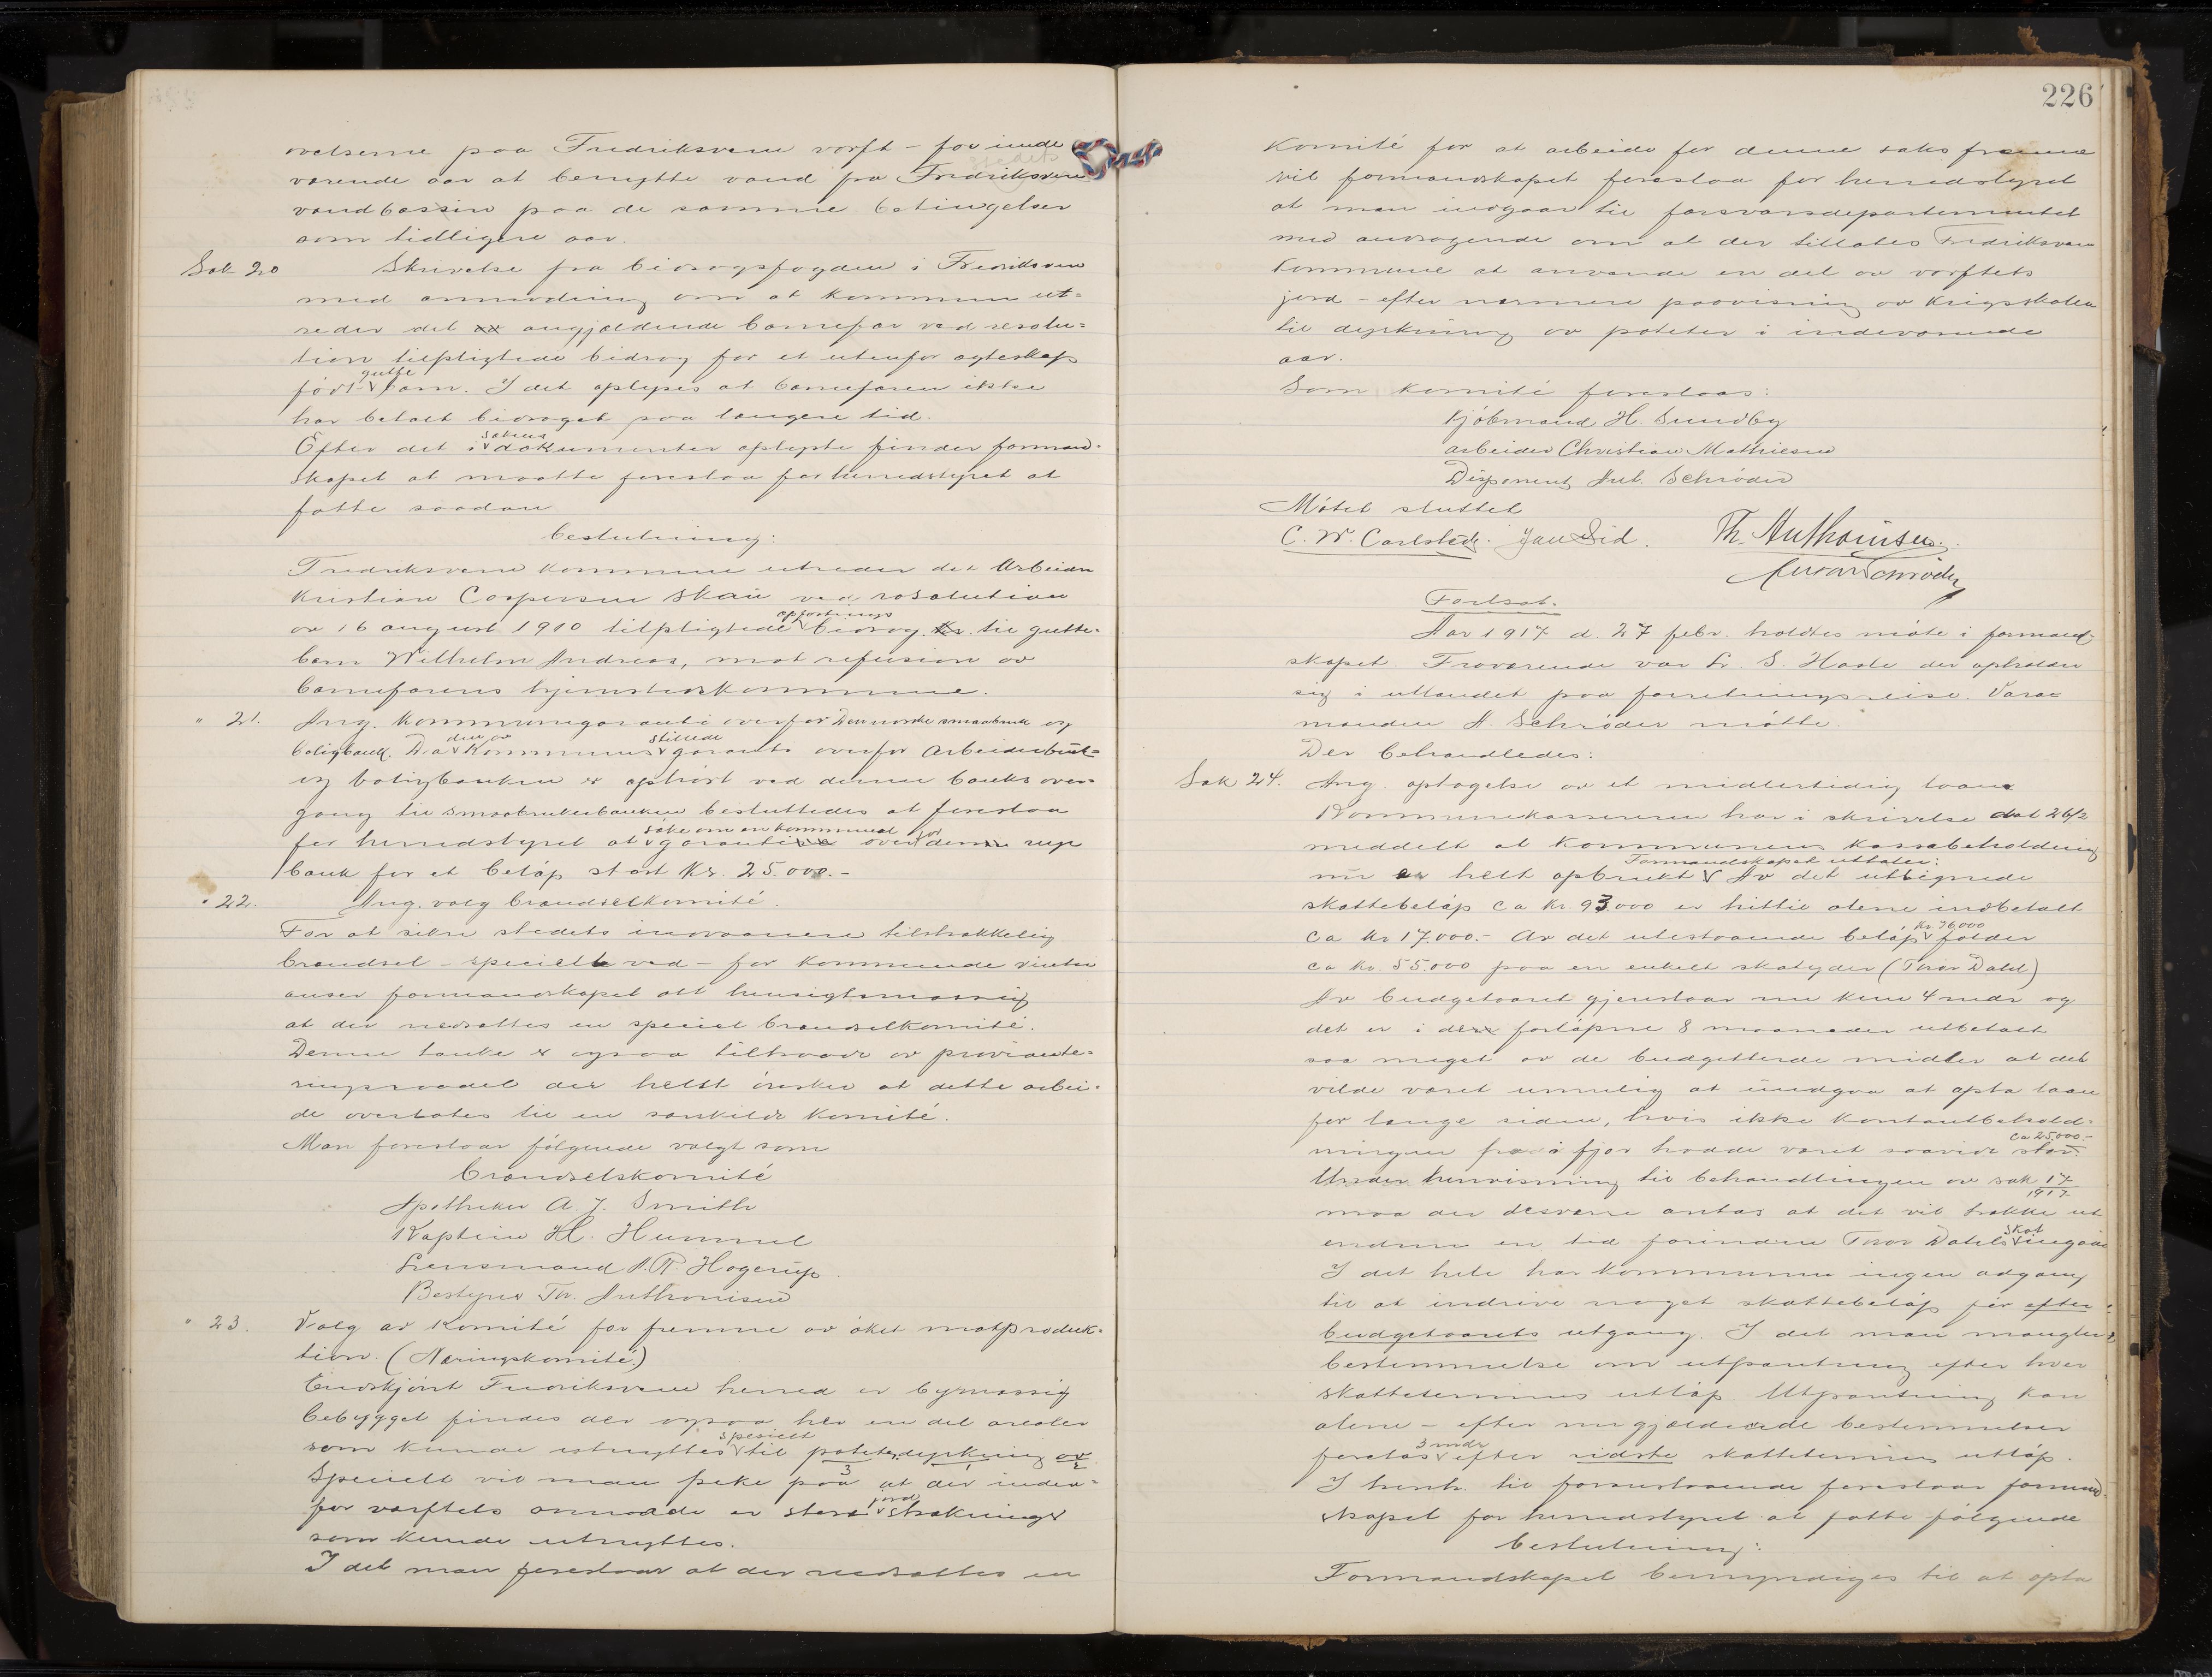 226
øvelserne paa Fredriksvern verft - for inde
værende aar at benytte vand fra Fredriksvern
vandbassin paa de samme betingelser
som tidligere aar.
Sak 20 Skrivelse fra bidragsfogden i Fredriksvern
med anmodning om at kommunen ut=
reder det angjældende barnefar ved resolu=
tion tilpligtede bidrag for et utenfor egteskap
født gutte barn. I det oplyses at barnefaren ikke
har betalt bidraget paa længere tid.
Efter det i sakens dokumenter oplyste finder formand=
skapet at maatte foreslaa for herredstyret at
fatte saadan
beslutning:
Fredriksvern kommune utreder det Arbeider
Kristian Caspersen Skau ved resolution
av 16 august 1910 tilpligtede opfostrings bidrag til gutte=
barn Wilhelm Andreas, mot refusion av
barnefarens hjemstedskommune.
" 21. Ang. kommunegaranti overfor Den norske smaabruk og
boligbank. Da den av kommunen stillede garanti overfor Arbeiderbruk=
og boligbanken er ophørt ved denne banks over=
gang til smaabrukerbanken besluttedes at foreslaa
for herredstyret at søke om en kommunal garanti overfor denne nye
bank for et beløp stort Kr. 25.000.-
" 22. Ang. valg brændselkomité.
For at sikre stedets indvaanere tilstrækkelig
brændsel - specielt ved - for kommende vinter
anser formandskapet det hensigtsmæssig
at der nedsættes en speciel brændselkomité.
Denne tanke er ogsaa tiltraadt av proviante=
ringsraadet der helst ønsker at dette arbei=
de overlates til en særskildt komité.
Man foreslaar følgende valgt som
brændselskomité
Apotheker A. J. Smith
Kaptein H. Hummel
Lensmand A. R. Hogerup.
Bestyrer Th. Anthonisen
" 23. Valg av komité for fremme av øket matproduk=
tion. (Næringskomité)
Endskjønt Fredriksvern herred er bymæssig
bebygget findes der ogsaa her en del arealer
som kunde utnyttes specielt til potetesdyrkning
Specielt vil man peke paa at der inden=
for verftets omraade er store jord strækninger
som kunde utnyttes.
I det man foreslaar at der nedsættes en
komité for at arbeide for denne saks fremme
vil formandskapet foreslaa for herredstyret
at man indgaar til forsvarsdepartementet
med andragende om at der tillates Fredriksvern
kommune at anvende en del av verftets
jord - efter nærmere paavisning av krigsskolen
til dyrkning av poteter i indeværende
aar.
Som komité foreslaas:
Kjøbmand H. Sundby
arbeider Christian Mathiesen
Disponent Ant. Schrøder
Møtet sluttet
C. W. Carlstedt. Th. Anthonisen.
Schrøder
Fortsat.
Aar 1917 d. 27 febr. holdtes møte i formand=
skapet. Fraværende var Lr. S. Haste der opholder
sig i utlandet paa forretningsreise. Vara=
manden A. Schrøder møtte.
Der behandledes:
Sak 24. Ang. optagelse av et midlertidig laan
Kommunekassereren har i skrivelse dat 26/2
meddelt at kommunens kassabeholdning
nu er helt opbrukt Formandskapet uttaler: Av det utlignede
skattebeløp ca kr. 93.000 er hittil alene indbetalt
ca kr 17.000.- Av det utestaaende beløp kr. 76.000 falder
ca kr. 55.000 paa en enkelt skatyder (Thor Dahl)
Av budgetaaret gjenstaar nu kun 4 mdr og
det er i de forløpne 8 maaneder utbetalt
saa meget av de budgetterte midler at det
vilde været umulig at undgaa at opta laan
for længe siden, hvis ikke kontantbehold=
ningen fra ifjor hadde været saavidt stor. ca 25.000.-
Under henvisning til behandlingen av sak 17/1917
maa der desværre antas at det vil trække ut
endnu en tid forinden Thor Dahls skat indgaar
I det hele har kommunen ingen adgang
til at inddrive noget skattebeløp før efter
budgetaarets utgang. I det man mangler
bestemmelse om utpantning efter hver
skattetermins utløp. Utpantning kan
alene - efter nugjældende bestemmelser
foretas 3 mdr efter sidste skattetermins utløp.
I henh. til foranstaaende foreslaar formand=
skapet for herredstyret at fatte følgende
beslutning:
Formandskapet bemyndiges til at opta